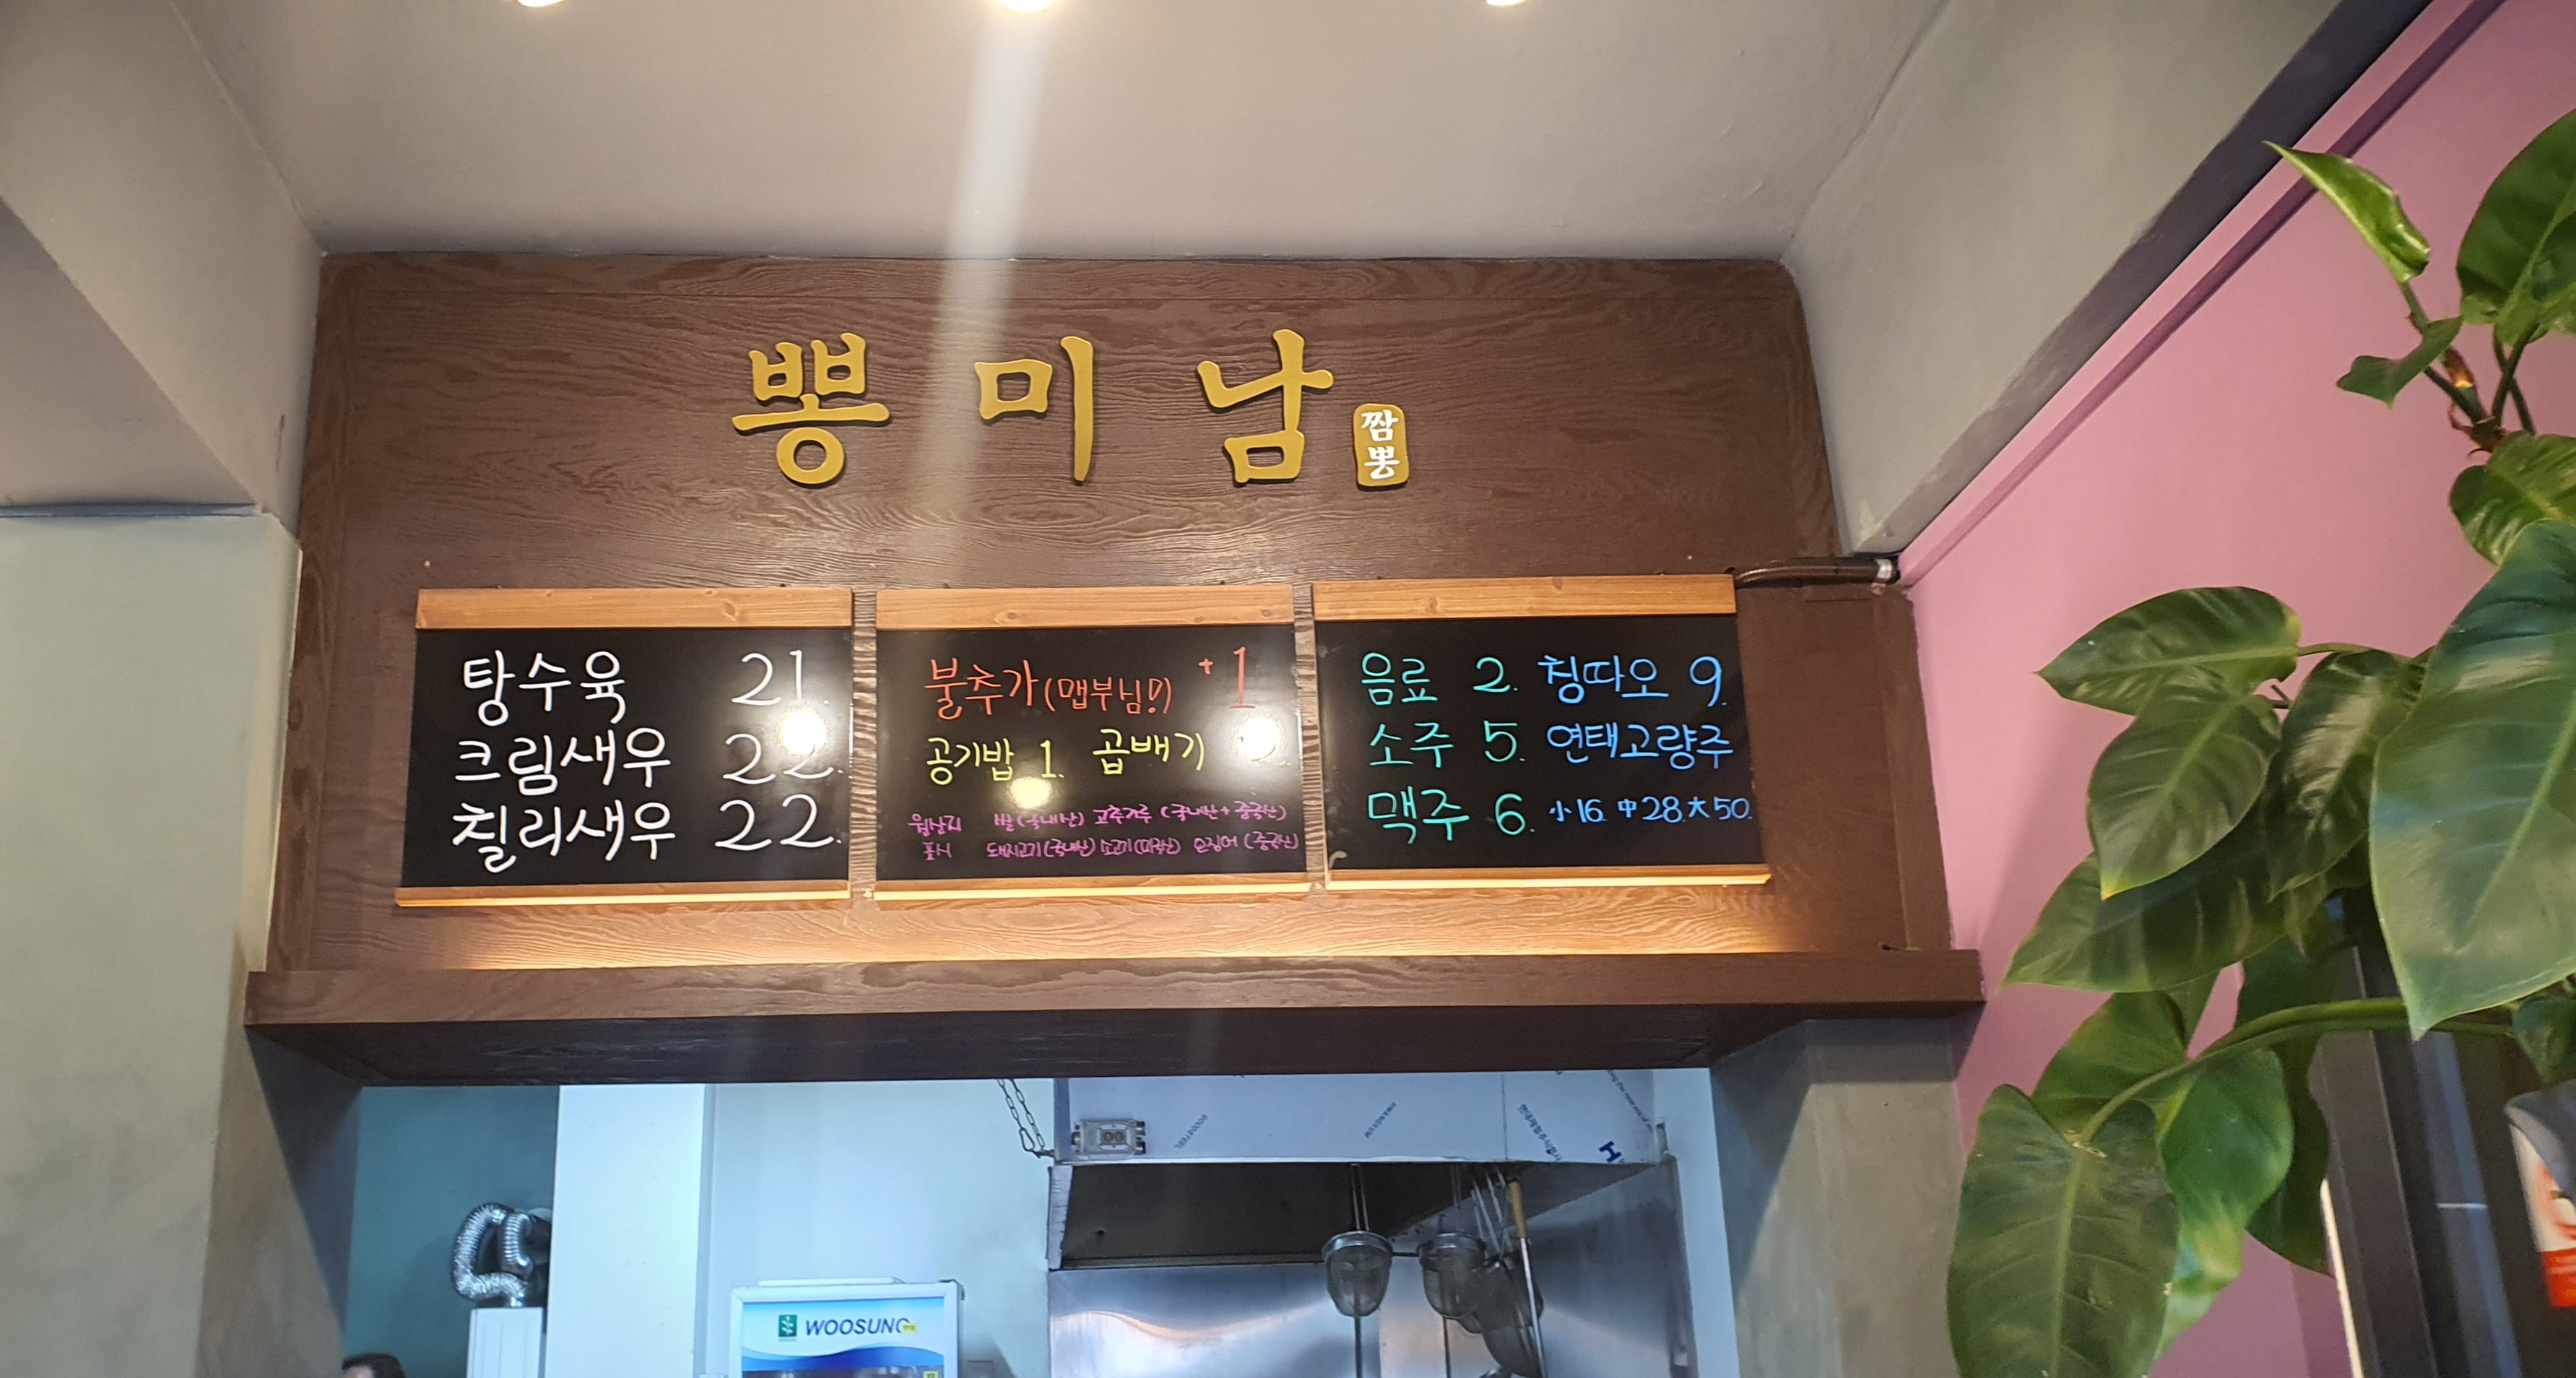 뽕미남
짬뽕
탕수육 21.
크림새우 22.
칠리새우 22.
불추가(맵부님!) +1
공기밥 1. 곱배기 2.
원산지 쌀(국내산) 고추가루(국내산+중국산)
표시 돼지고기(국내산) 소고기(미국산) 오징어(중국산)
음료 2. 칭따오 9.
소주 5. 연태고량주
맥주 6. 小16. 中28. 大50.
WOOSUNG